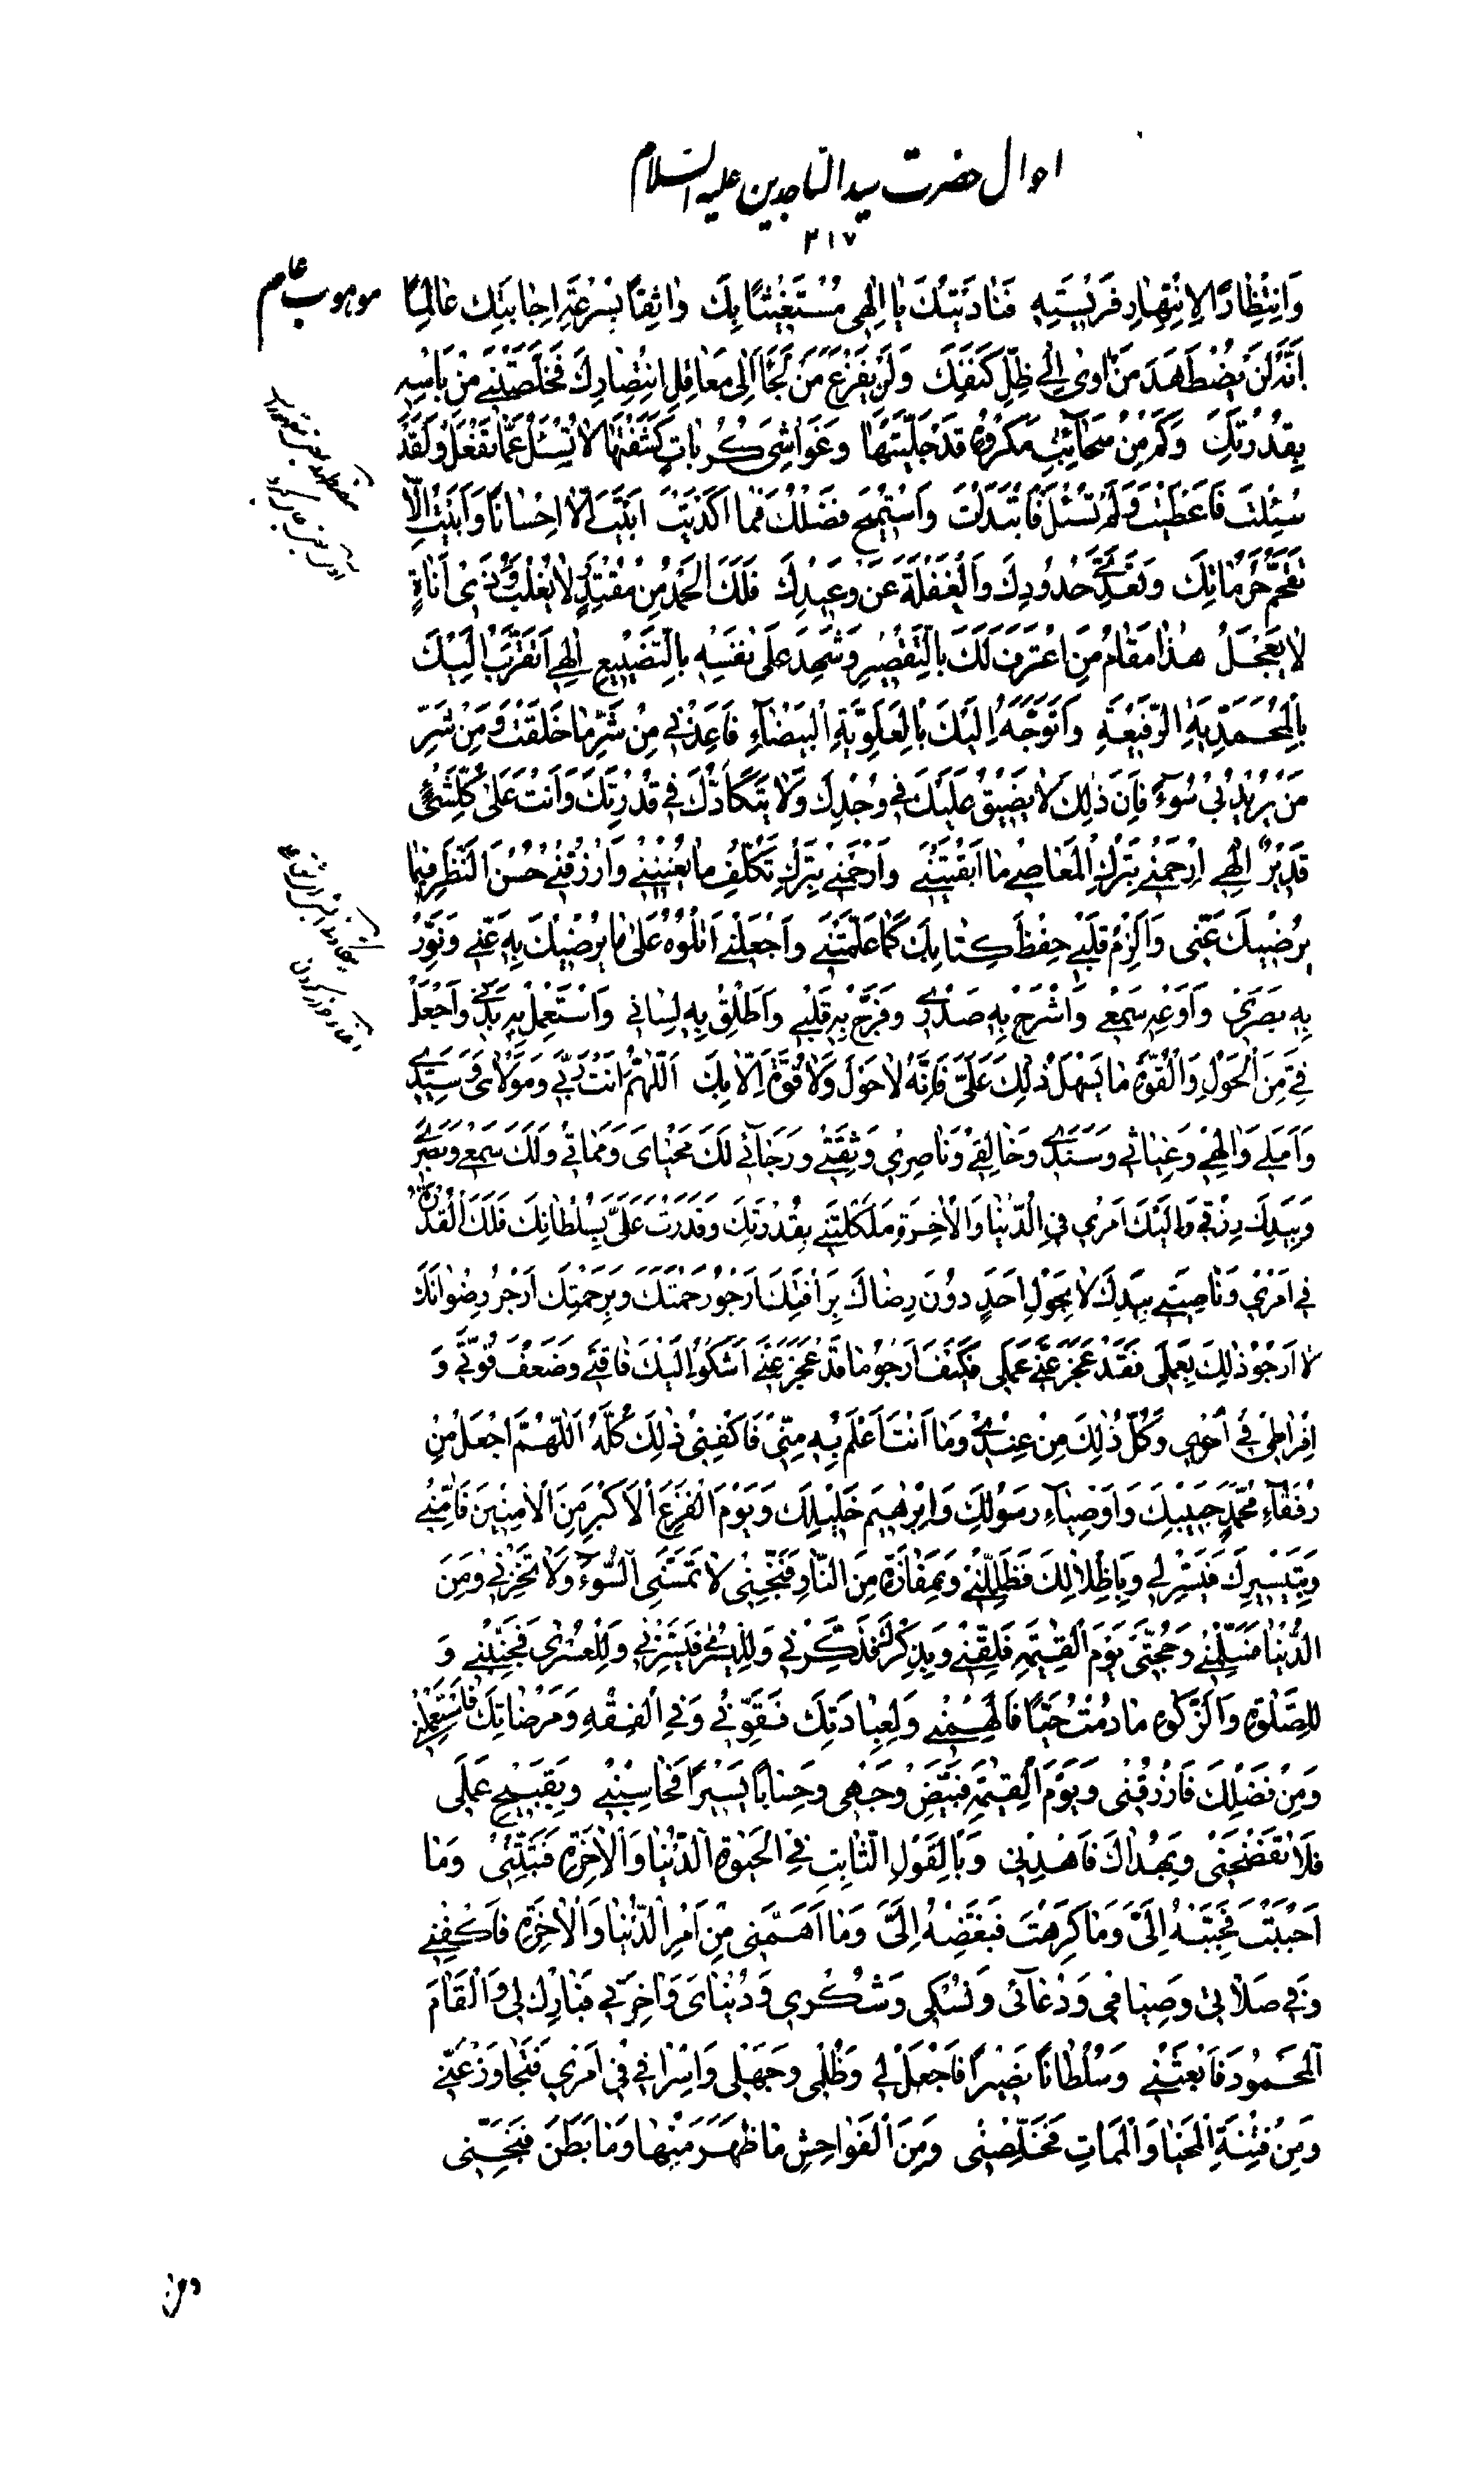 احوال حضرت سید الساجدین علیه السلام
۳۱۷
وَانْتِظارًا لِانْتِهازِ فَریسَتِهِ فَنادَیْتُكَ یا اِلٰهی مُسْتَغیثًا بِكَ واثِقًا بِسُرْعَةِ اِجابَتِكَ عالِمًا
اَنَّهُ لَنْ یُضْطَهَدَ مَنْ اَوٰی اِلٰی ظِلِّ كَنَفِكَ وَلَنْ یَفْزَعَ مَنْ لَجَأَ اِلٰی مَعاقِلِ انْتِصارِكَ فَخَلَّصْتَنی مِنْ بَأْسِهِ
بِقُدْرَتِكَ وَكَمْ مِنْ سَحائِبِ مَكْرُوهٍ قَدْ جَلَّیْتَها وَغَواشِیَ كُرُباتٍ كَشَفْتَها لا تُسْئَلُ عَمّا تَفْعَلُ وَلَقَدْ
سُئِلْتَ فَاَعْطَیْتَ وَلَمْ تُسْئَلْ فَابْتَدَأْتَ وَاسْتُمیحَ فَضْلُكَ فَما اَكْدَیْتَ اَبَیْتَ اِلّا اِحْسانًا وَاَبَیْتُ اِلّا
تَقَحُّمَ حُرُماتِكَ وَتَعَدِّیَ حُدُودِكَ وَالْغَفْلَةَ عَنْ وَعیدِكَ فَلَكَ الْحَمْدُ مِنْ مُقْتَدِرٍ لا یُغْلَبُ وَذی اَناةٍ
لا یَعْجَلُ هٰذا مَقامُ مَنِ اعْتَرَفَ لَكَ بِالتَّقْصیرِ وَشَهِدَ عَلٰی نَفْسِهِ بِالتَّضْییعِ اِلٰهی اَتَقَرَّبُ اِلَیْكَ
بِالْمُحَمَّدِیَّةِ الرَّفیعَةِ وَاَتَوَجَّهُ اِلَیْكَ بِالْعَلَوِیَّةِ الْبَیْضآءِ فَاَعِذْنی مِنْ شَرِّ ما خَلَقْتَ وَمِنْ شَرِّ
مَنْ یُریدُ بی سُوءً فَاِنَّ ذٰلِكَ لا یَضیقُ عَلَیْكَ فی وُجْدِكَ وَلا یَتَكَأَّدُكَ فی قُدْرَتِكَ وَاَنْتَ عَلٰی كُلِّ شَیْءٍ
قَدیرٌ اِلٰهی اِرْحَمْنی بِتَرْكِ الْمَعاصی ما اَبْقَیْتَنی وَارْحَمْنی بِتَرْكِ تَكَلُّفِ ما یُعْنینی وَارْزُقْنی حُسْنَ النَّظَرِ فیما
یُرْضیكَ عَنّی وَاَلْزِمْ قَلْبی حِفْظَ كِتابِكَ كَما عَلَّمْتَنی وَاجْعَلْنی اَتْلُوهُ عَلٰی ما یُرْضیكَ بِهِ عَنّی وَنَوِّرْ
بِهِ بَصَری وَاَوْعِهِ سَمْعی وَاشْرَحْ بِهِ صَدْری وَفَرِّجْ بِهِ قَلْبی وَاَطْلِقْ بِهِ لِسانی وَاسْتَعْمِلْ بِهِ بَدَنی وَاجْعَلْ
فِیَّ مِنَ الْحَوْلِ وَالْقُوَّةِ ما یُسَهِّلُ ذٰلِكَ عَلَیَّ فَاِنَّهُ لا حَوْلَ وَلا قُوَّةَ اِلّا بِكَ اَللّٰهُمَّ اَنْتَ رَبّی وَمَوْلایَ وَسَیِّدی
وَاَمَلی وَاِلٰهی وَغِیاثی وَسَنَدی وَخالِقی وَناصِری وَثِقَتی وَرَجآئی لَكَ مَحْیایَ وَمَماتی وَلَكَ سَمْعی وَبَصَری
وَبِیَدِكَ رِزْقی وَاِلَیْكَ اَمْری فِی الدُّنْیا وَالْاٰخِرَةِ مَلَكْتَنی بِقُدْرَتِكَ وَقَدَرْتَ عَلَیَّ بِسُلْطانِكَ فَلَكَ الْقُدْرَةُ
فی اَمْری وَناصِیَتی بِیَدِكَ لا یَحُولُ اَحَدٌ دُونَ رِضاكَ بِرَأْفَتِكَ اَرْجُو رَحْمَتَكَ وَبِرَحْمَتِكَ اَرْجُو رِضْوانَكَ
لا اَرْجُو ذٰلِكَ بِعَمَلی فَقَدْ عَجَزَ عَنّی عَمَلی فَكَیْفَ اَرْجُو ما قَدْ عَجَزَ عَنّی اَشْكُو اِلَیْكَ فاقَتی وَضَعْفَ قُوَّتی وَ
اِفْراطی فی اَمْری وَكُلُّ ذٰلِكَ مِنْ عِنْدی وَما اَنْتَ اَعْلَمُ بِهِ مِنّی فَاكْفِنی ذٰلِكَ كُلَّهُ اَللّٰهُمَّ اجْعَلْنی مِنْ
رُفَقآءِ مُحَمَّدٍ حَبیبِكَ وَاَوْصِیآءِ رَسُولِكَ وَاِبْرٰهیمَ خَلیلِكَ وَیَوْمَ الْفَزَعِ الْاَكْبَرِ مِنَ الْاٰمِنینَ فَاٰمِنّی
وَبِتَیْسیرِكَ فَیَسِّرْ لی وَبِاَظْلالِكَ فَظَلِّلْنی وَبِمَفازَةٍ مِنَ النّارِ فَنَجِّنی لا تَمَسَّنِی السُّوءُ وَلا تُخْزِنی وَمِنَ
الدُّنْیا فَسَلِّمْنی وَحُجَّتی یَوْمَ الْقِیٰمَةِ فَلَقِّنّی وَبِذِكْرِكَ فَذَكِّرْنی وَلِلْیُسْرٰی فَیَسِّرْنی وَلِلْعُسْرٰی فَجَنِّبْنی وَ
لِلصَّلٰوةِ وَالزَّكٰوةِ ما دُمْتُ حَیًّا فَاَلْهِمْنی وَلِعِبادَتِكَ فَقَوِّنی وَفِی الْفِقْهِ وَمَرْضاتِكَ فَاسْتَعْمِلْنی
وَمِنْ فَضْلِكَ فَارْزُقْنی وَیَوْمَ الْقِیٰمَةِ فَبَیِّضْ وَجْهی وَحِسابًا یَسیرًا فَحاسِبْنی وَبِقَبیحِ عَمَلی
فَلا تَفْضَحْنی وَبِهُداكَ فَاهْدِنی وَبِالْقَوْلِ الثّابِتِ فِی الْحَیٰوةِ الدُّنْیا وَالْاٰخِرَةِ فَثَبِّتْنی وَما
اَحْبَبْتَ فَحَبِّبْهُ اِلَیَّ وَما كَرِهْتَ فَبَغِّضْهُ اِلَیَّ وَما اَهَمَّنی مِنْ اَمْرِ الدُّنْیا وَالْاٰخِرَةِ فَاكْفِنی
وَفی صَلاتی وَصِیامی وَدُعآئی وَنُسُكی وَشُكْری وَدُنْیایَ وَاٰخِرَتی فَبارِكْ لی وَالْمَقامَ
الْمَحْمُودَ فَابْعَثْنی وَسُلْطانًا نَصیرًا فَاجْعَلْ لی وَظُلْمی وَجَهْلی وَاِسْرافی فی اَمْری فَتَجاوَزْ عَنّی
وَمِنْ فِتْنَةِ الْمَحْیا وَالْمَماتِ فَخَلِّصْنی وَمِنَ الْفَواحِشِ ما ظَهَرَ مِنْها وَما بَطَنَ فَنَجِّنی